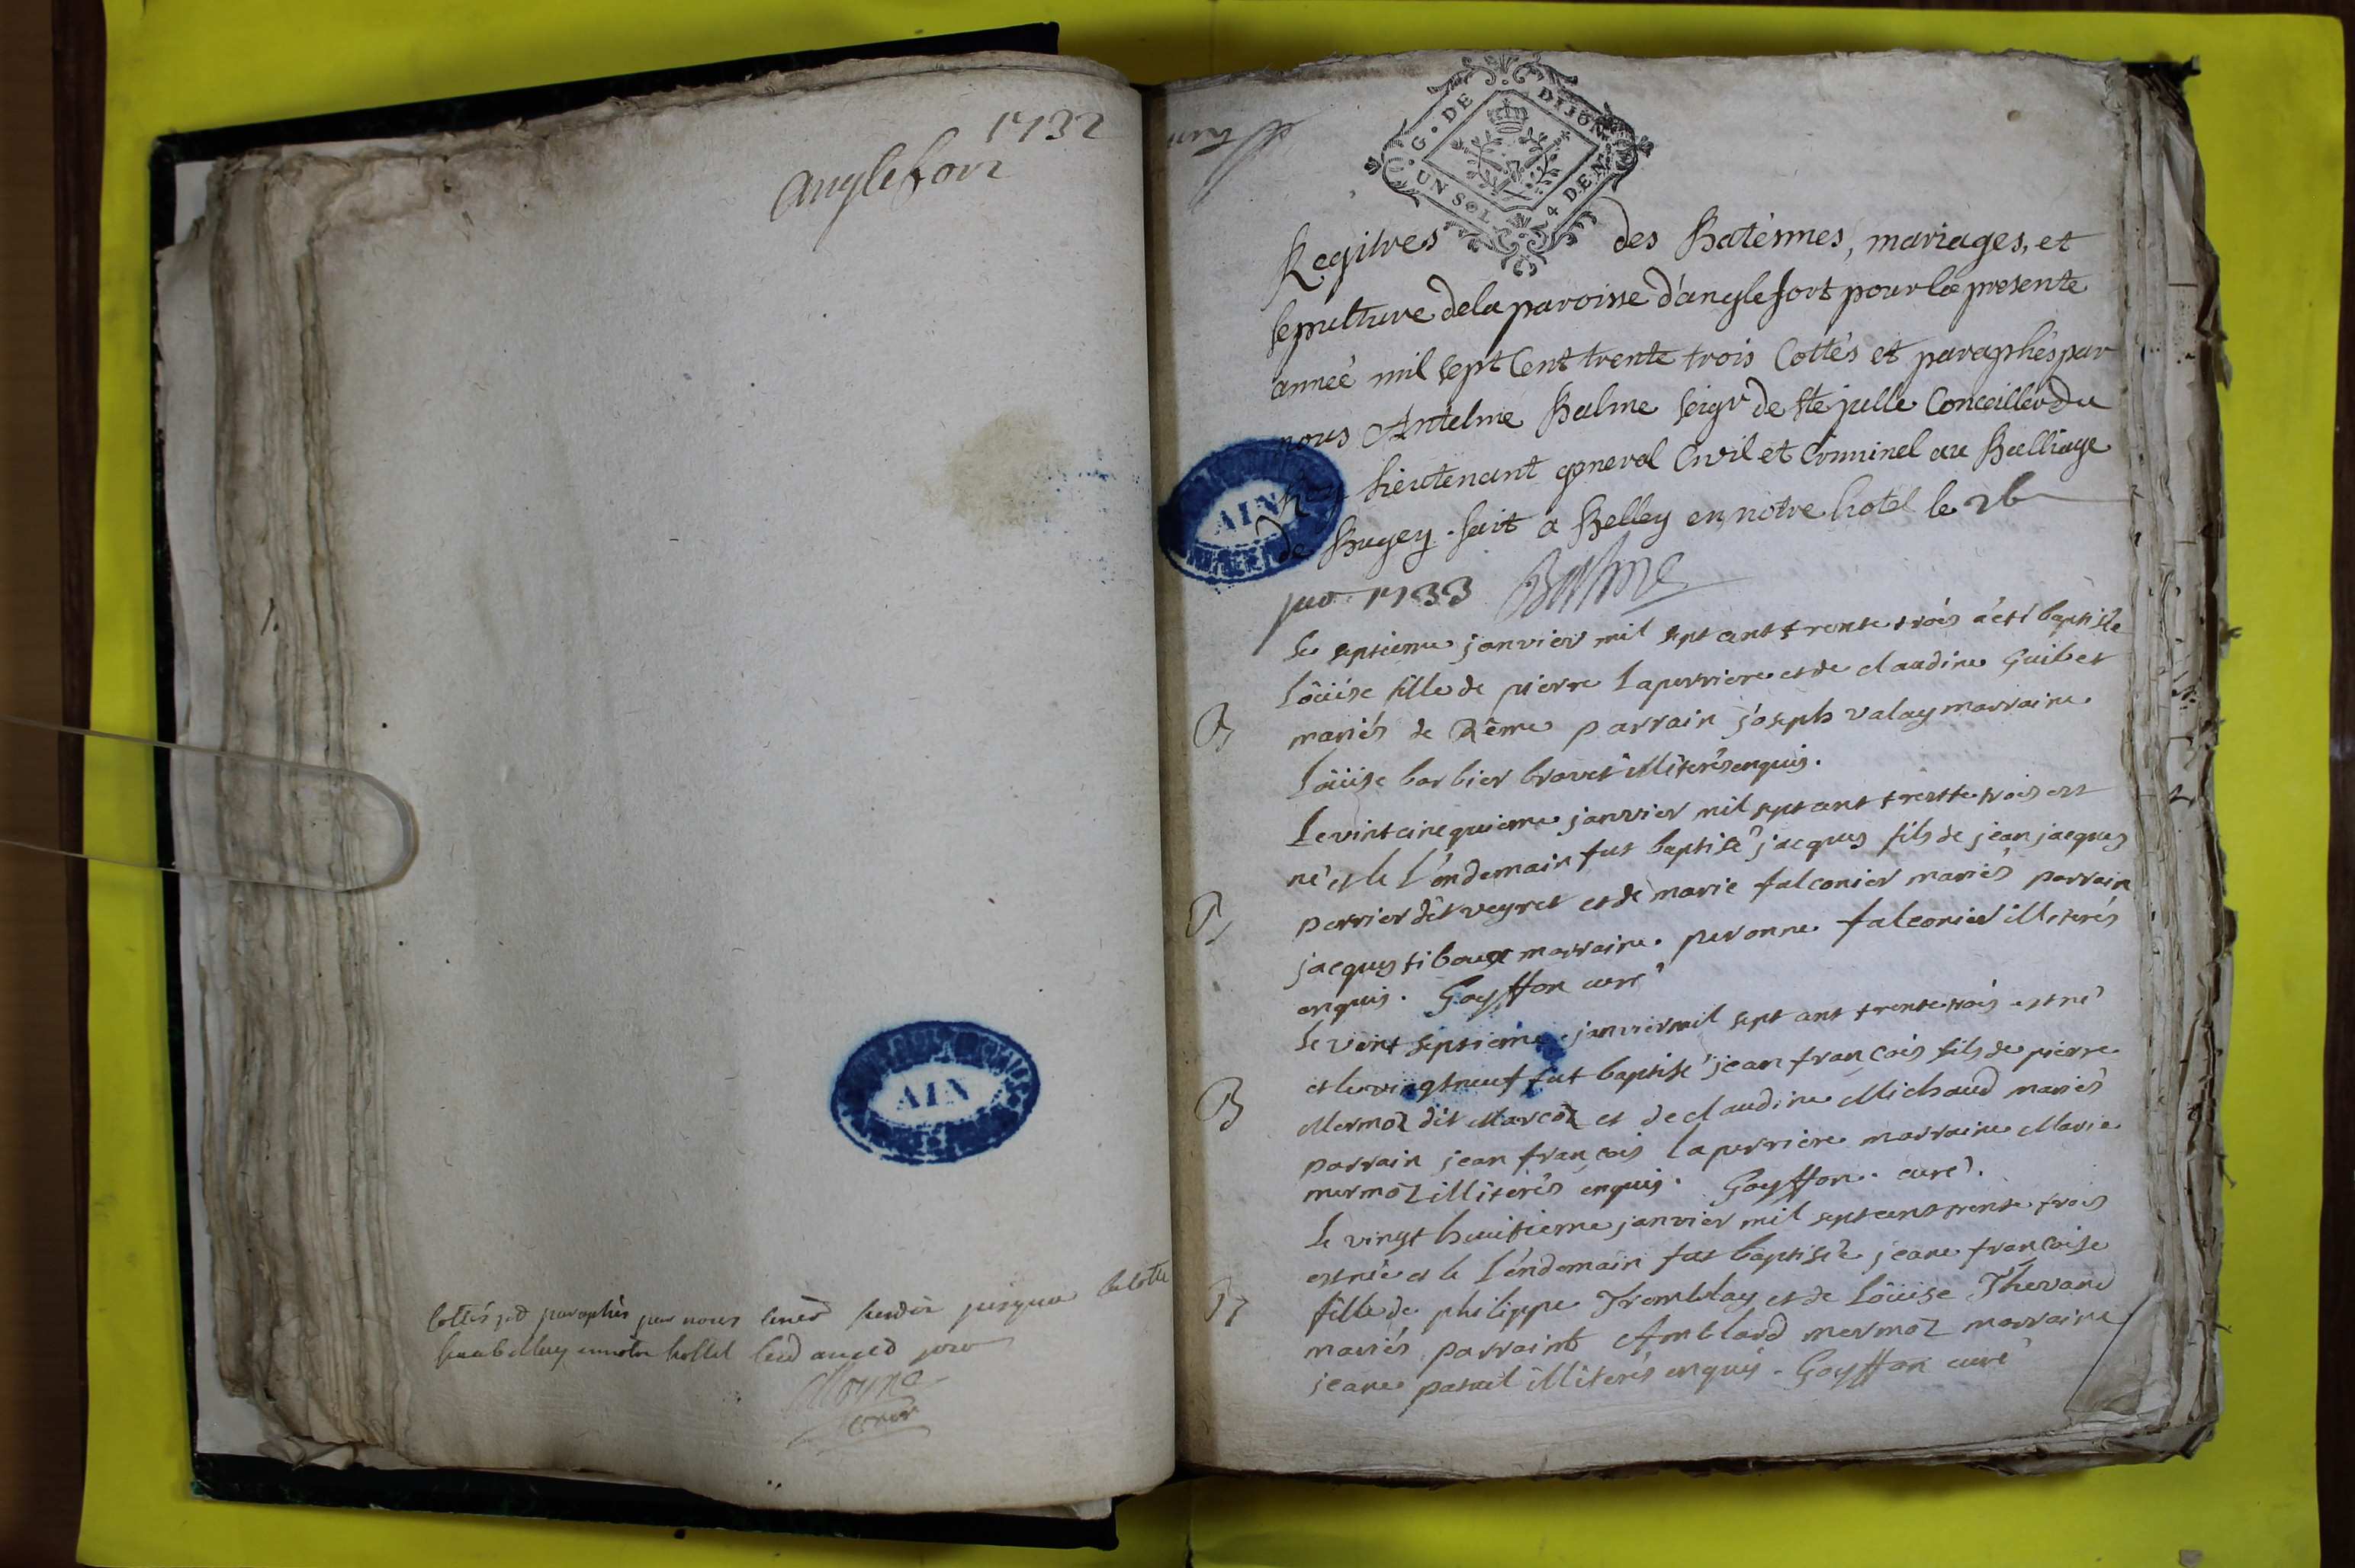 1732
Anglefort
AIN
Cottés et paraphés par nous
G. DE DIJON
UN SOL 4 DEN
Regitres des Batêmes, mariages, et
sepulture de la paroisse d'anglefort pour la presente
année mil sept Cent trente trois Cottés et paraphés par
nous Antelme Balme seigr de Ste julle Conceiller du
Roy Lieutenant general Civil et Criminel au Balliage
de Bugey. fait a Belley en notre hotel le 26
1733 Balme
AIN
Le septieme janvier mil sept cent trente trois a été baptisée
Loüise fille de pierre Laperriere et de claudine Guibet
B mariés de Rême parrain joseph valay marraine
Loüise barbier bravet illiterés enquis.
Le vint cinequieme janvier mil sept cent trente trois est
né et le l'endemain fut baptisé jacques fils de jean jacques
B perrier dit veyret et de marie falconier mariés parrain
jacques tiboux marraine peronne falconier illiterés
enquis. Goyffon curé
Le vint septieme janvier mil sept cent trente trois est né
et le vingt neuf fut baptisé jean françois fils de pierre
B Mermoz dit Marcoz et de claudine Michaud mariés
parrain jean françois laperriere marraine Marie
mermoz illiterés enquis. Goyffon curé.
Le vingt huitieme janvier mil sept cent trente trois
est née et le l'endemain fut baptisée jeane françoise
B fille de philippe Tremblay et de Loüise Thevand
mariés parraint Amblard mermoz marraine
jeane patuel illiterés enquis. Goyffon curé